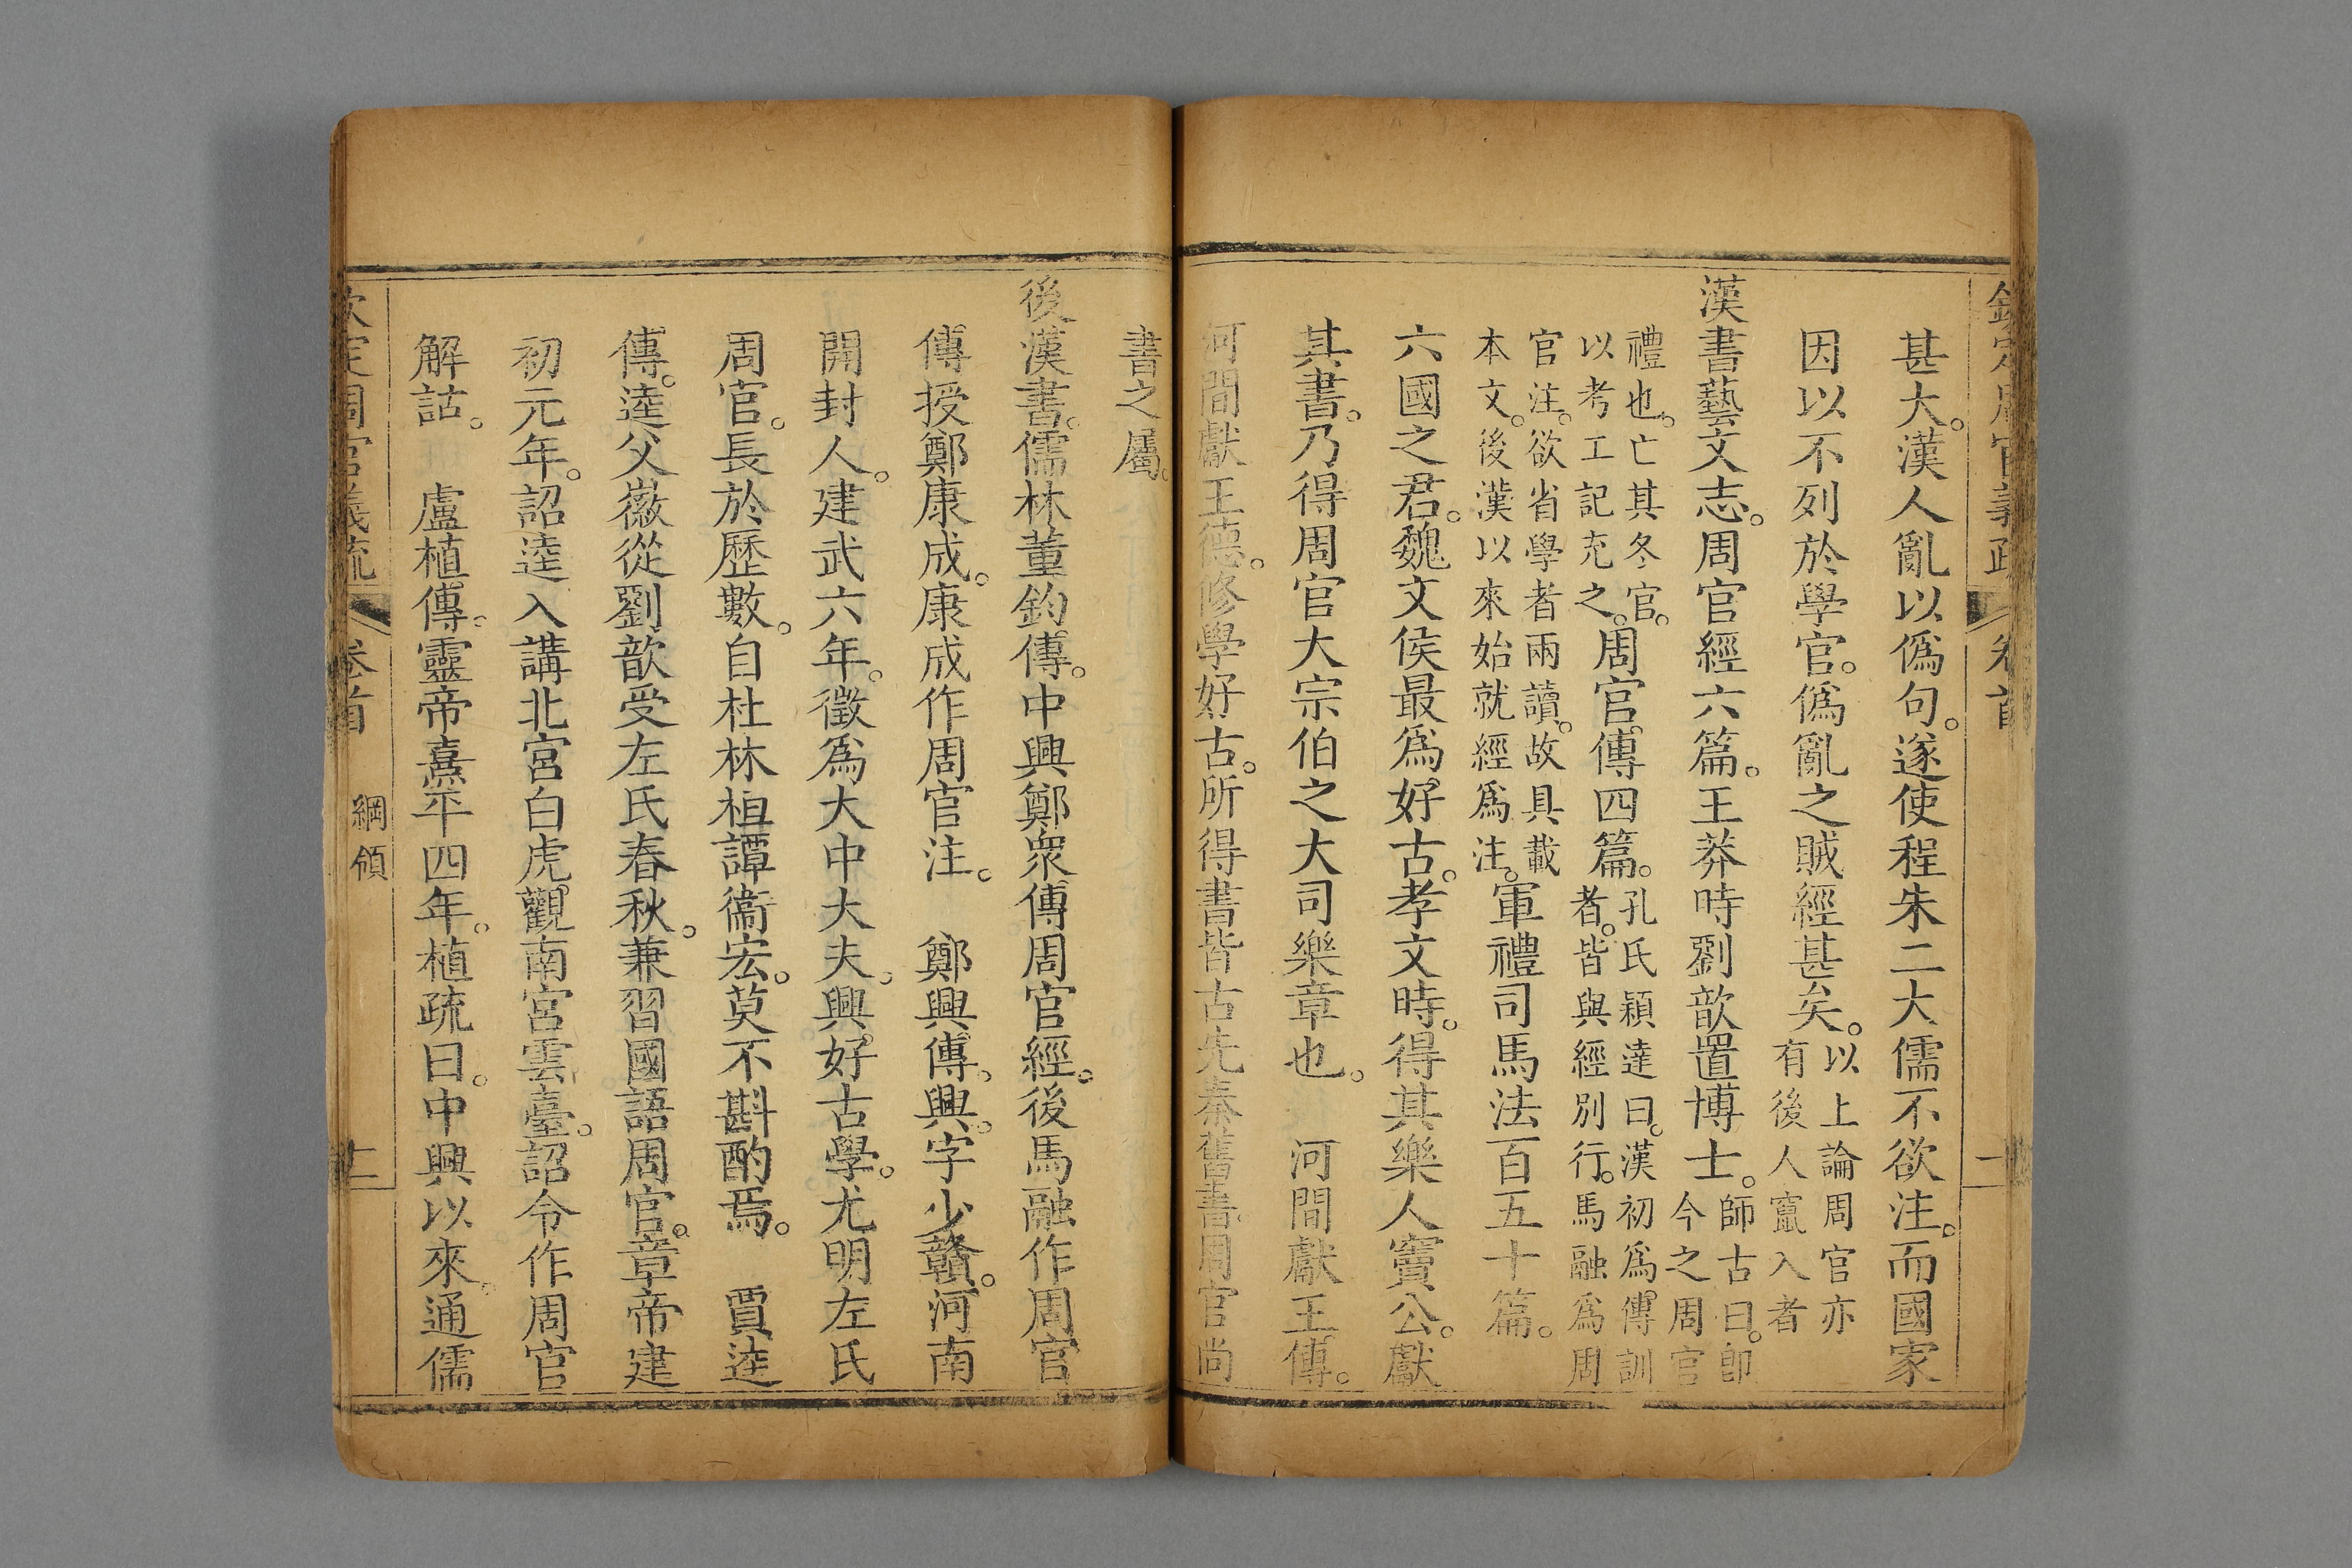 甚大。漢人亂以僞句。遂使程朱二大儒不欲注。而國家
因以不列於學官。僞亂之賊經甚矣。以上論周官亦
有後人竄入者
漢書藝文志。周官經六篇。王莽時劉歆置博士。師古曰。卽
今之周官
禮也。亡其冬官。
以考工記充之。周官傳四篇。孔氏穎達曰。漢初爲傳訓
者。皆與經別行。馬融爲周
官注。欲省學者兩讀。故具載
本文。後漢以來始就經爲注。軍禮司馬法百五十篇。
六國之君。魏文侯最爲好古。孝文時。得其樂人竇公。獻
其書。乃得周官大宗伯之大司樂章也。 河間獻王傳。
河間獻王德。修學好古。所得書皆古先秦舊書。周官尚
書之屬。
後漢書。儒林董鈞傳。中興鄭衆傳周官經。後馬融作周官
傳授鄭康成。康成作周官注。 鄭興傳。興。字少贛。河南
開封人。建武六年。徵爲大中大夫。興好古學。尤明左氏
周官。長於歷數。自杜林桓譚衞宏。莫不斟酌焉。 賈逵
傳。逵父徽從劉歆受左氏春秋。兼習國語周官。章帝建
初元年。詔逵入講北宮白虎觀南宮雲臺。詔令作周官
解詁。 盧植傳。靈帝熹平四年。植疏曰。中興以來。通儒
欽定周官義疏 卷首 綱領 十二